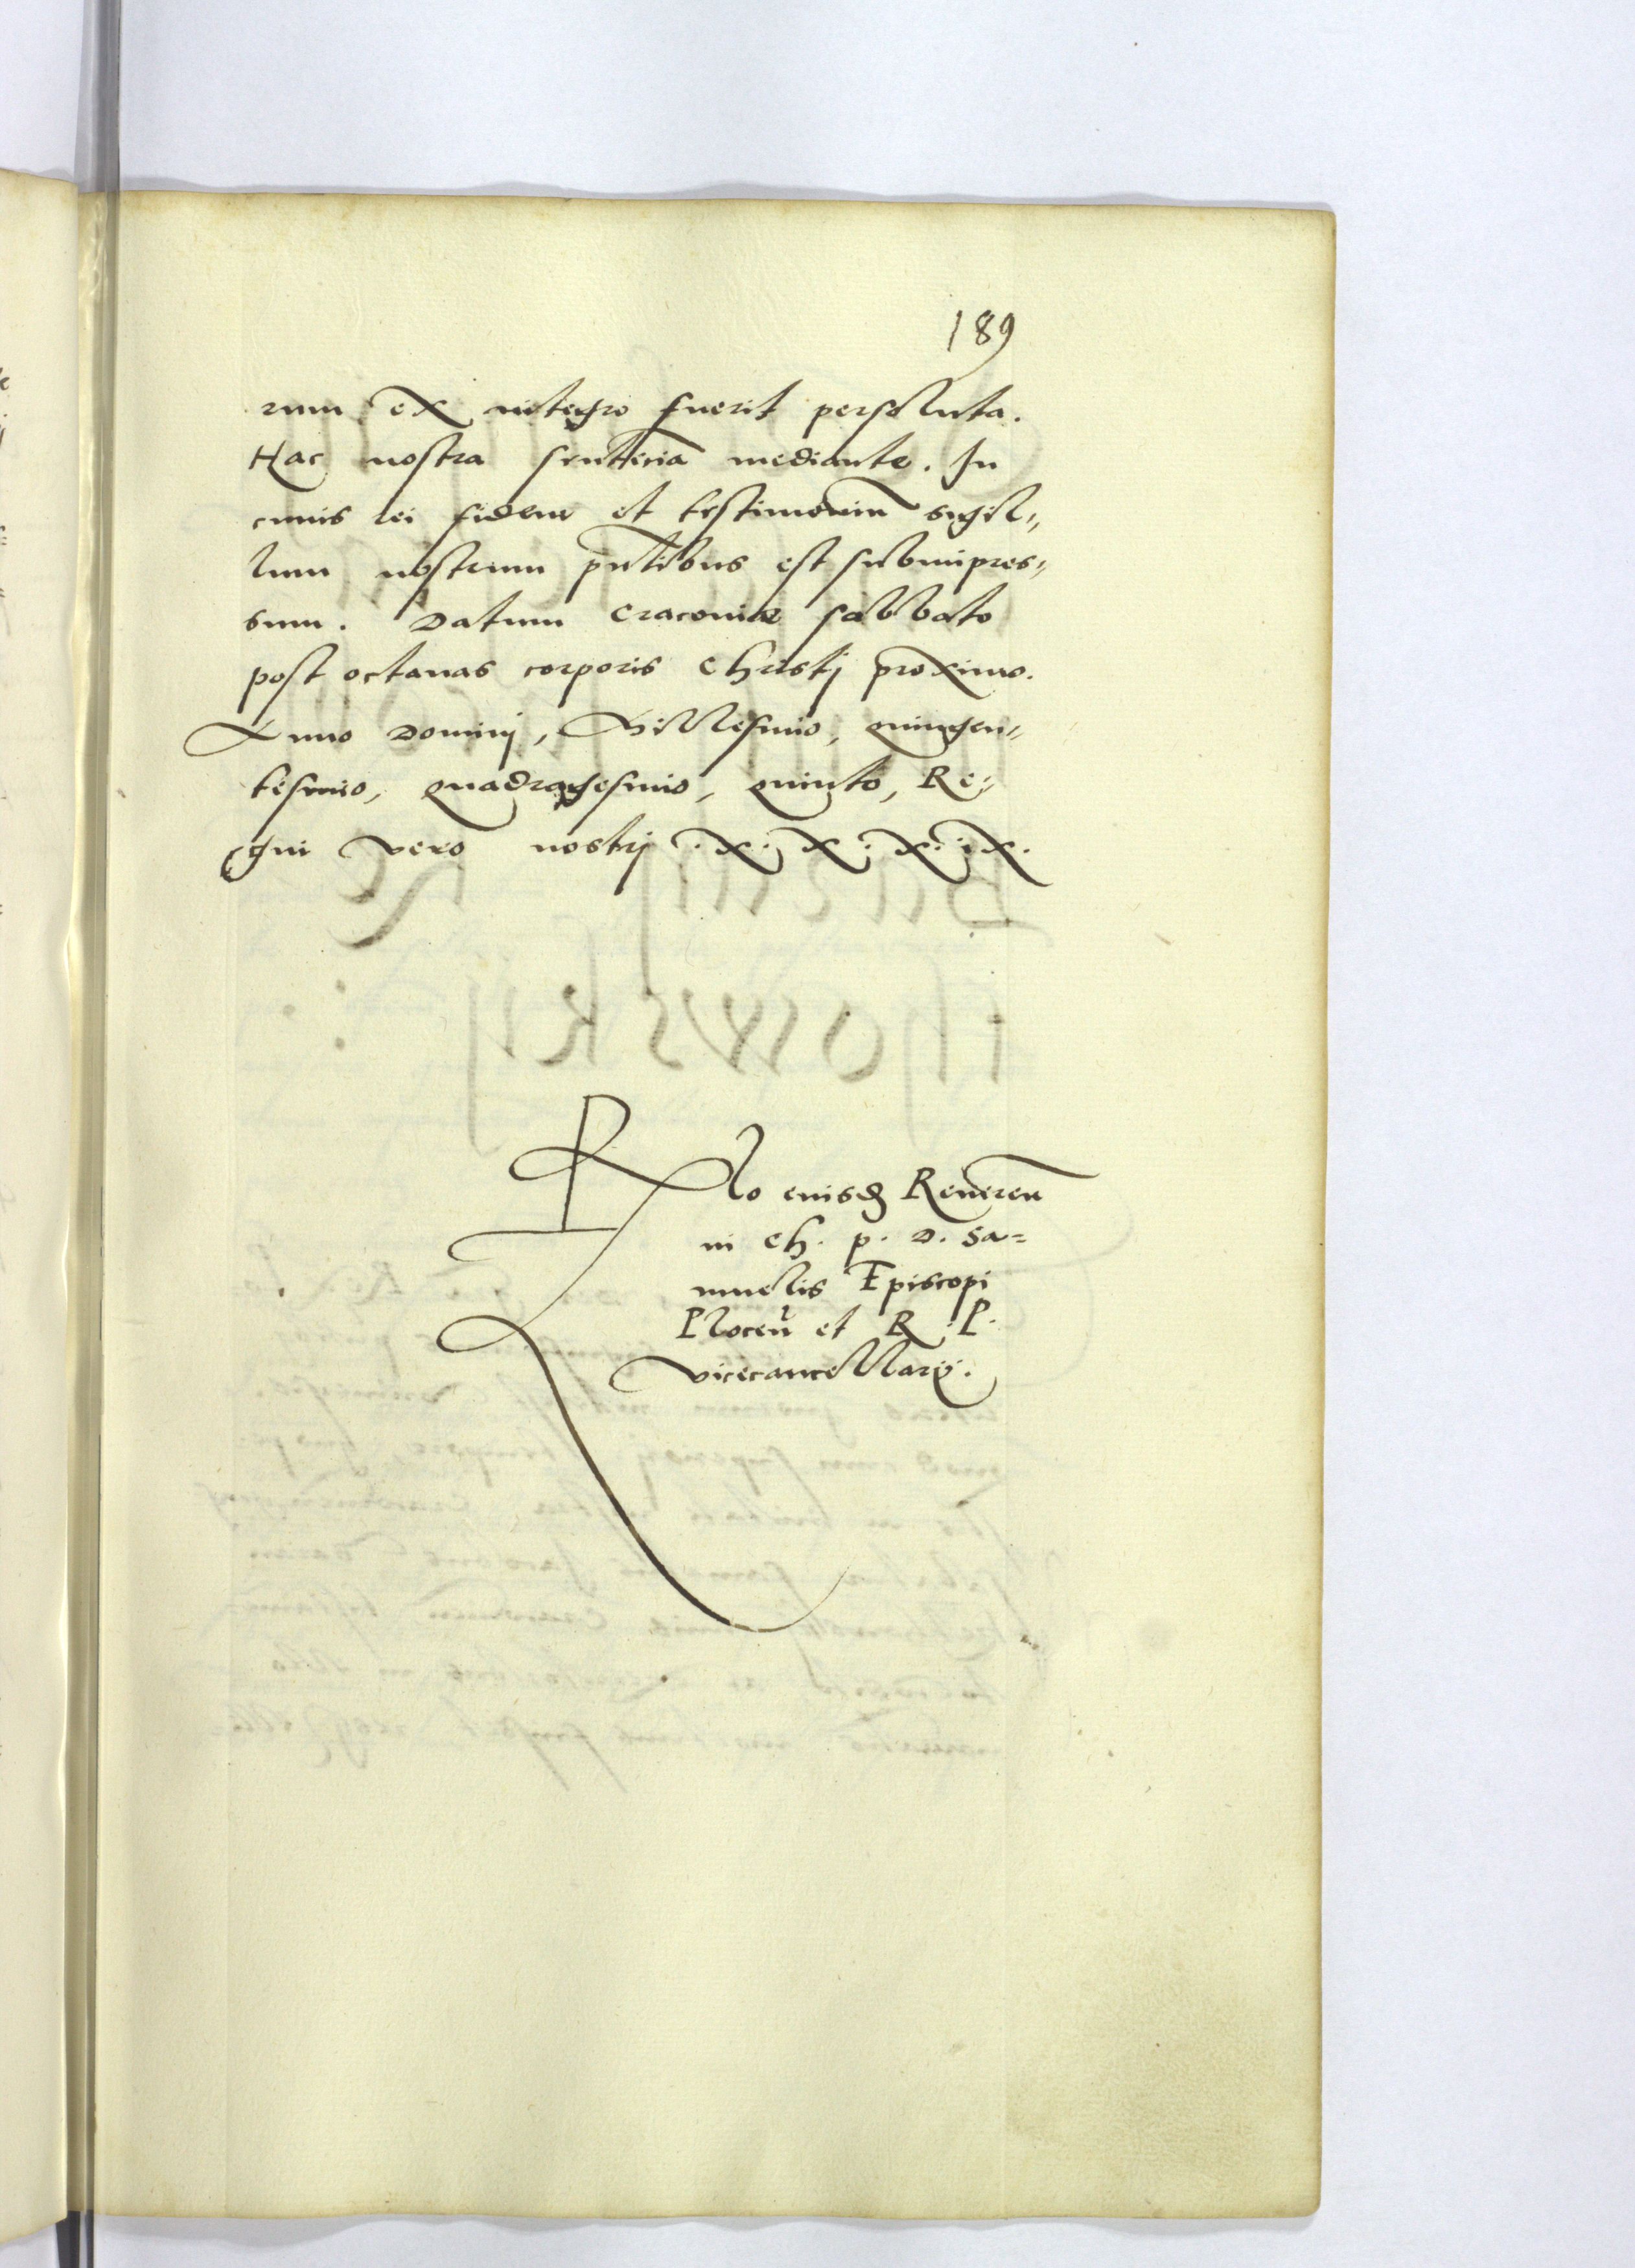 189
rum ex integro fuerit persoluta.
Hac nostra sententia mediante. In
cuius rei fidem et testimoniũ sigil„
lum nostrum pñtibus est subimpres„
sum. Datum Cracoviæ sabbato
post octavas corporis Christj proximo.
Anno Dominj, Millesimo, quingen„
tesimo, quadragesimo, quinto, Re„
gni vero nostrj .X. X. X. iX.
Rlo eiusd Reveren
in Ch. p. D. Sa=
muelis Episcopi
Plocen̄ et R. P.
vicecancellarij.